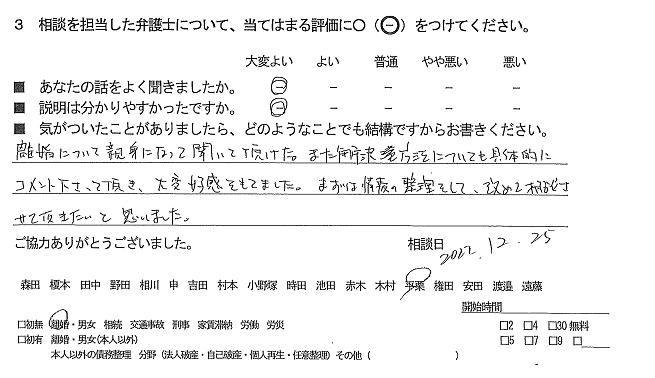 3 相談を担当した弁護士について、当てはまる評価に○（⊖）をつけてください。
大変よい よい 普通 やや悪い 悪い
■ あなたの話をよく聞きましたか。 − − − − −
■ 説明は分かりやすかったですか。 − − − − −
■ 気がついたことがありましたら、どのようなことでも結構ですからお書きください。
離婚について親身になって聞いて頂けた。また解決方法についても具体的に
コメント下さって頂き、大変好感をもてました。まずは情報の整理をして、改めて相談さ
せて頂きたいと思いました。
ご協力ありがとうございました。 相談日 2022.12.25
森田 榎本 田中 野田 相川 申 吉田 村本 小野塚 時田 池田 赤木 木村 平栗 権田 安田 渡邉 遠藤
開始時間
□初無 離婚・男女 相続 交通事故 刑事 家賃滞納 労働 労災 □2 □4 □30 無料
□初有 離婚・男女(本人以外) □5 □7 □9 □
本人以外の債務整理 分野（法人破産・自己破産・個人再生・任意整理）その他（ ）